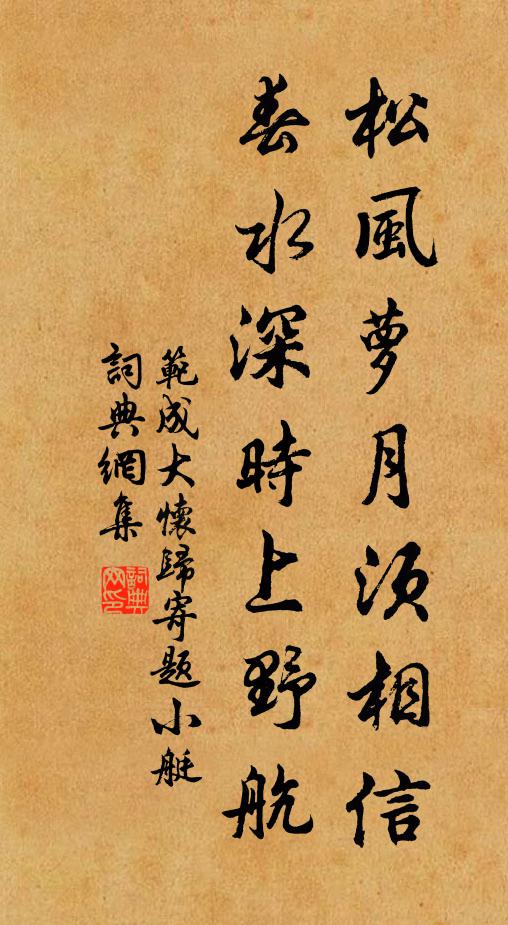 松風萝月須相信
春水深時上野航
範成大懷歸寄題小艇
詞典網集
詞典网印